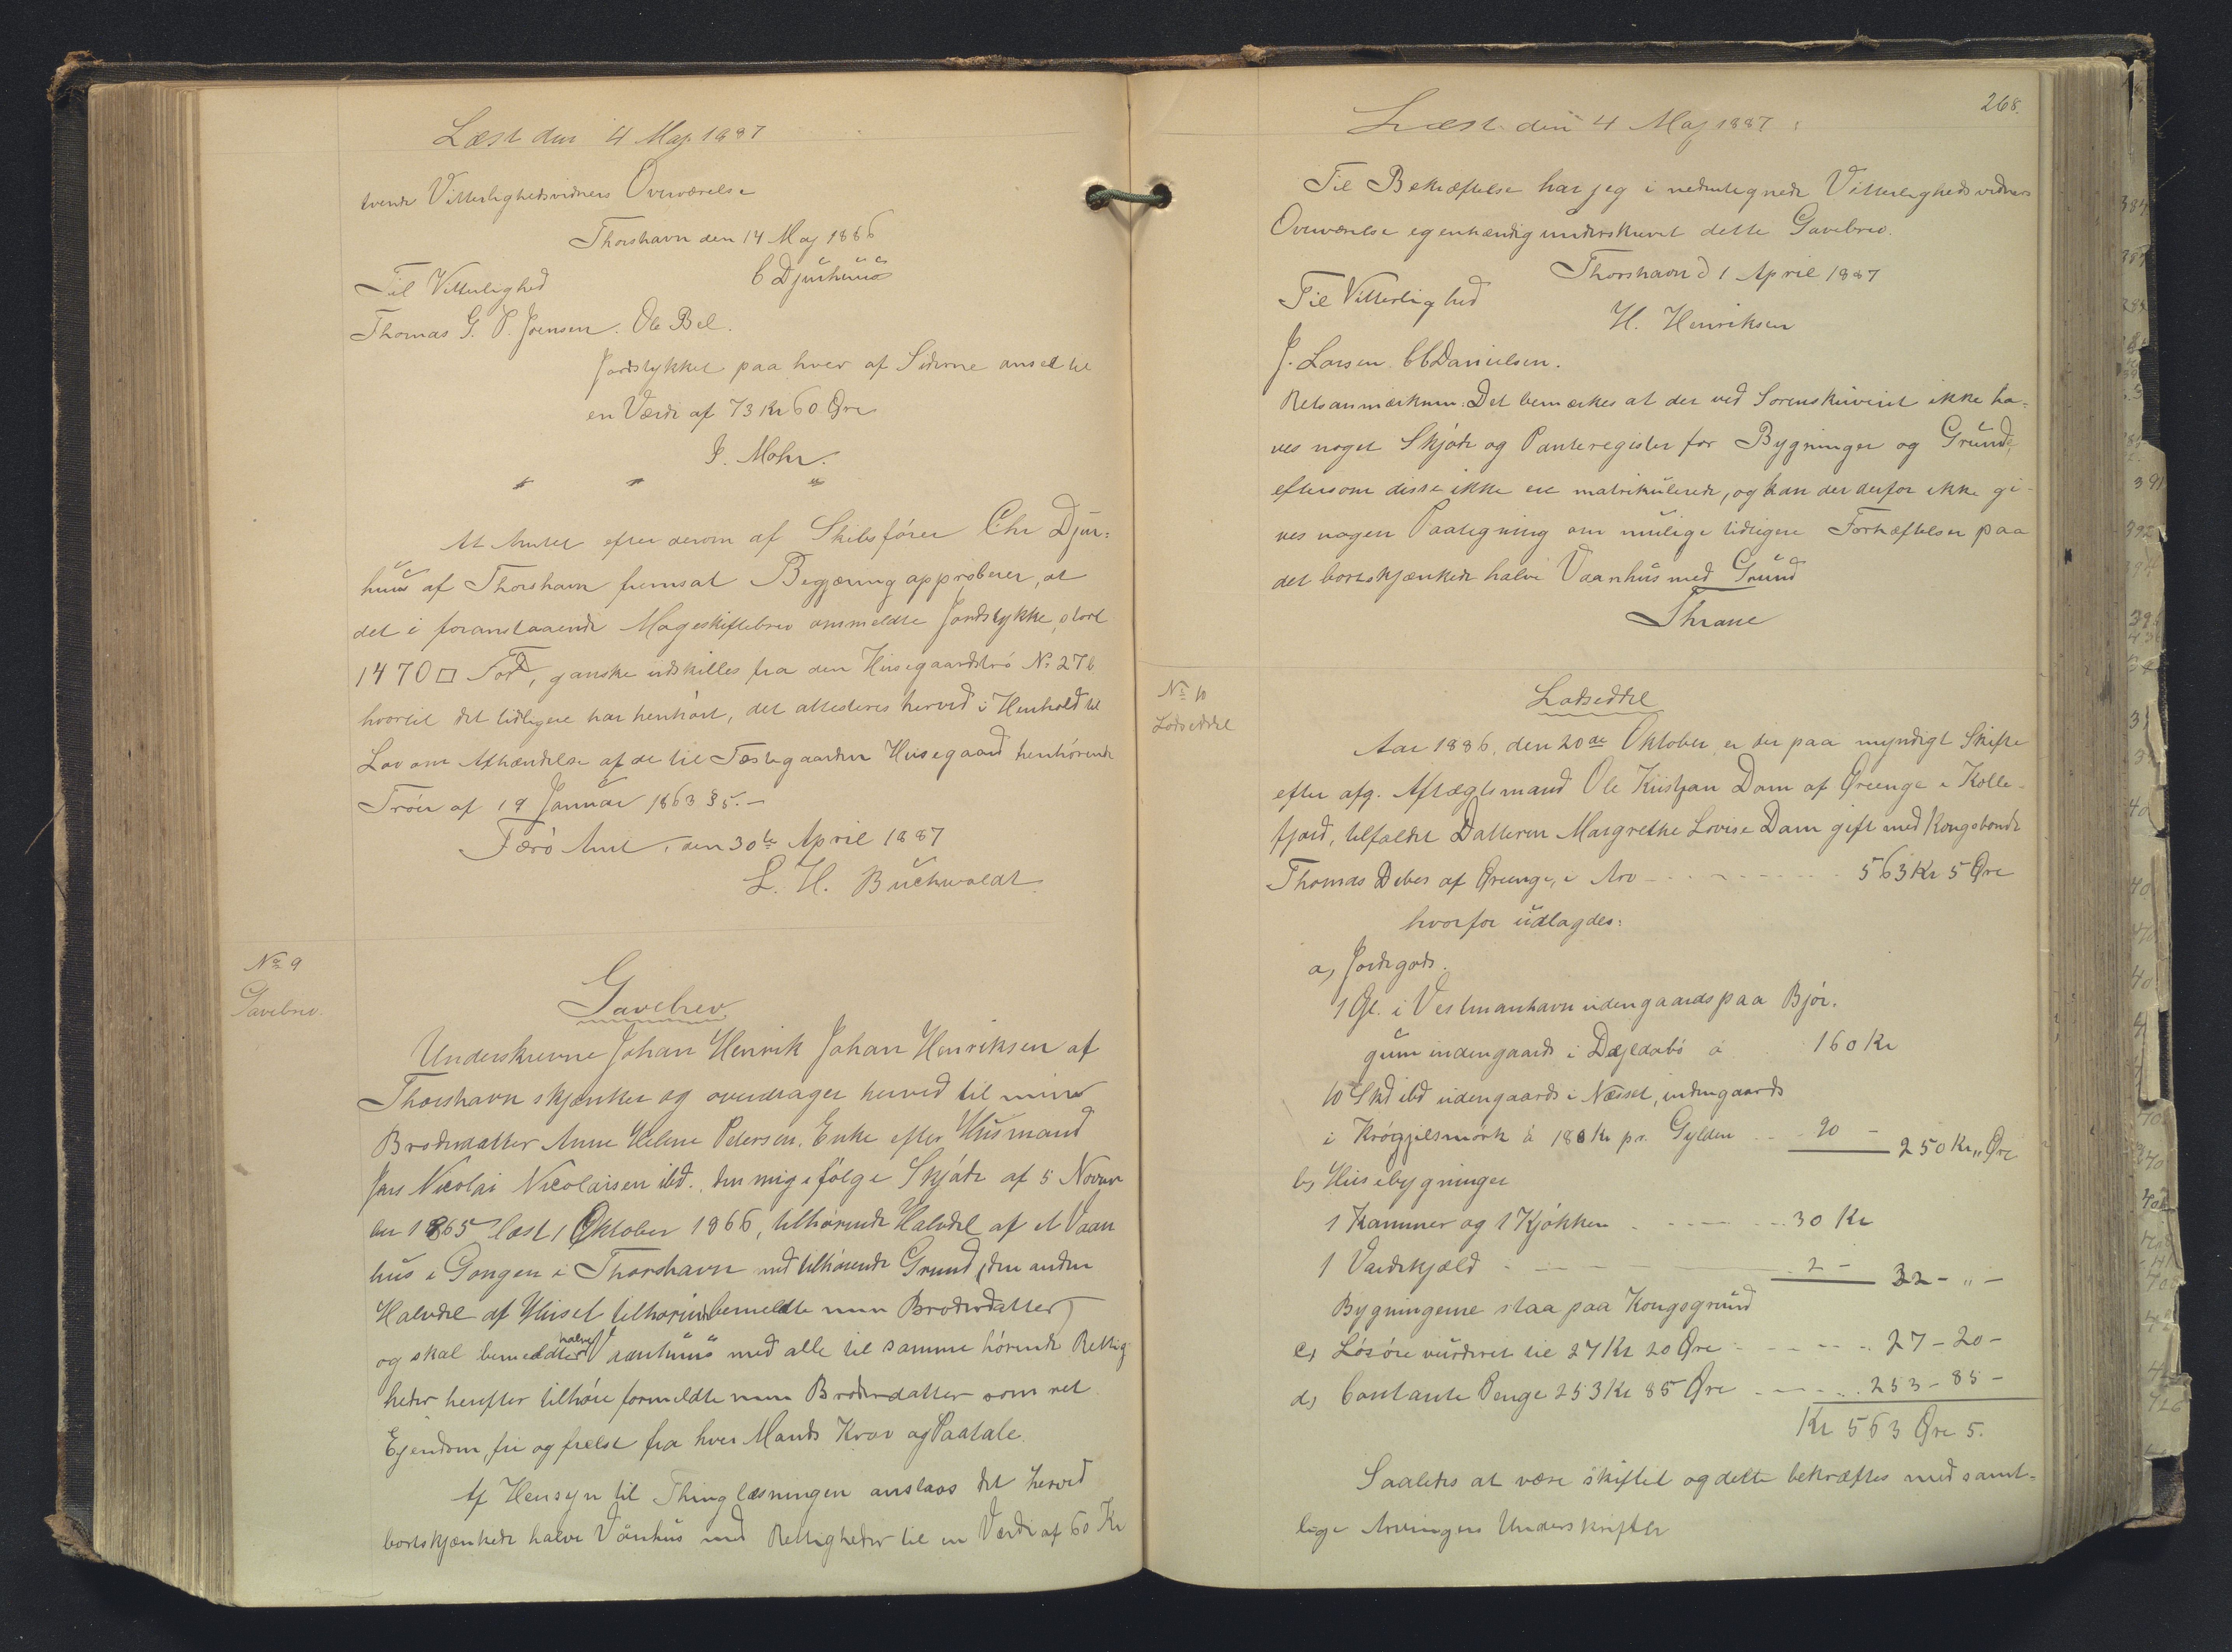 Læst den 4 Maj 1887
tvende Vitterlighedsvidners Overværelse
Thorshavn den 14 Maj 1886
Til Vitterlighed
C Djurhuus
Thomas G. P. Joensen. Ole Bel.
Jordstykket paa hver af Siderne anset til
en Værdi af 73 Kr 60 Øre
J. Mohr.
" " "
At Amtet efter derom af Skibsfører Chr Djur-
huus af Thorshavn fremsat Begjæring approberer, at
det i foranstaaende Mageskiftebrev ommeldte Jordstykke, stort
1470 □ Fod, ganske udskilles fra den Husegaardstrø No 27b
hvortil det tidligere har henhørt, det attesteres herved i Henhold til
Lov om Afhændelse af de til Fæstegaarden Husegaard henhørende
Trøer af 19 Januar 1863 § 5.-
Færø Amt, den 30te April 1887
L. H. Buchwaldt
No 9
Gavebrev.
Gavebrev.
Underskrevne Johan Henrik Johan Henriksen af
Thorshavn skjænker og overdrager herved til min
Broderdatter Anne Helene Petersen. Enke efter Husmand
Jens Nicolai Nicolaisen ibd. den mig ifølge Skjøde af 5 Novem
ber 1865 læst 1 Oktober 1866, tilhørende Halvdel af et Vaan
hus i Gongen i Thorshavn med tilhørende Grund, (den anden
Halvdel af Huset tilhører bemeldte min Broderdatter)
og skal bemeldte halve Vaanhuus med alle til samme hørende Rettig
heder herefter tilhøre formeldte min Broderdatter som ret
Ejendom, fri og frelst fra hver Mands Krav og Paatale.
Af Hensyn til Thinglæsningen anslaas det herved
bortskjænkede halve Vånhus med Rettigheder til en Værdi af 60 Kr
268.
Læst den 4 Maj 1887
Til Bekræftelse har jeg i nedentegnede Vitterlighedsvidners
Overværelse egenhændig underskrevet dette Gavebrev.
Thorshavn d 1 April 1887
Til Vitterlighed
H. Henriksen
J. Larsen. C C Danielsen.
Retsanmærkning: Det bemærkes at der ved Sorenskriveriet ikke ha-
ves noget Skjøde og Panteregister for Bygninger og Grunde,
eftersom disse ikke ere matrikulerede, og kan der derfor ikke gi-
ves nogen Paategning om mulige tidligere Forhæftelser paa
det bortskjænkede halve Vaanhus med Grund
Thrane
No 10
Lodseddel
Lodseddel
Aar 1886, den 20de Oktober er der paa myndigt Skifte
efter afg. Aftægtsmand Ole Kristjan Dam af Øreenge i Kolle-
fjord, tilfaldet Datteren Margrethe Lovise Dam gift med Kongsbonde
Thomas Debes af Øreenge, i Arv - - - - - 563 Kr 5 Øre
hvorfor udlagdes:
a, Jordegods.
1 Gl. i Vestmanhavn udengaards paa Bjør-
gum indengaards i Dæjldabø à . . 160 Kr
10 Skd ibd udengaards i Næsset, indengaards
i Krógjilsmørk à 180 Kr pr. Gylden . . 90 - 250 Kr „ Øre
b, Husebygninger
1 Kammer og 1 Kjøkken - - - - - 30 Kr
1 Vaidskjæld - - - 2 - 32 - „ -
Bygningerne staa paa Kongsgrund
c, Løsøre vurderet til 27 Kr 20 Øre - - - - 27 - 20 -
d, Contante Penge 253 Kr 85 Øre - - - 253 - 85 -
Kr 563 Øre 5.
Saaledes at være skiftet og delte bekræftes med samt-
lige Arvingers Underskrifter